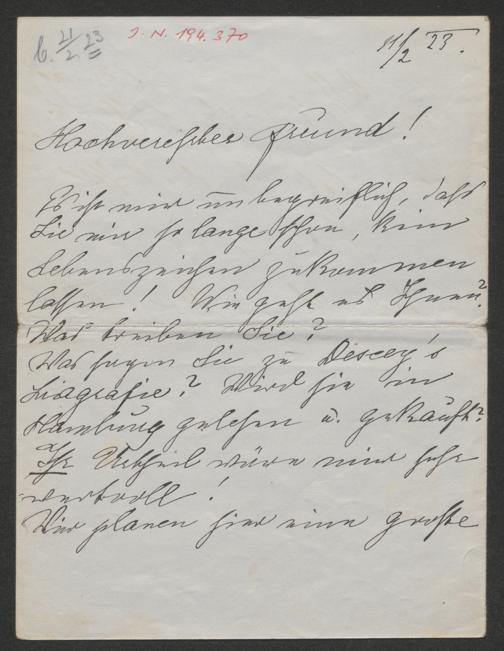 b. 21/2 23
I. N. 194.370
21/2 23.
Hochverehrter Freund!
Es ist mir unbegreiflich, daß
Sie mir so lange schon, kein
Lebenszeichen zukommen
lassen! Wie geht es Ihnen?
Was treiben Sie?
Was sagen Sie zu Decsey's
Biografie? Wird sie in
Hamburg gelesen u. gekauft?
Ihr Urtheil wäre mir sehr
wertvoll!
Wir planen hier eine große